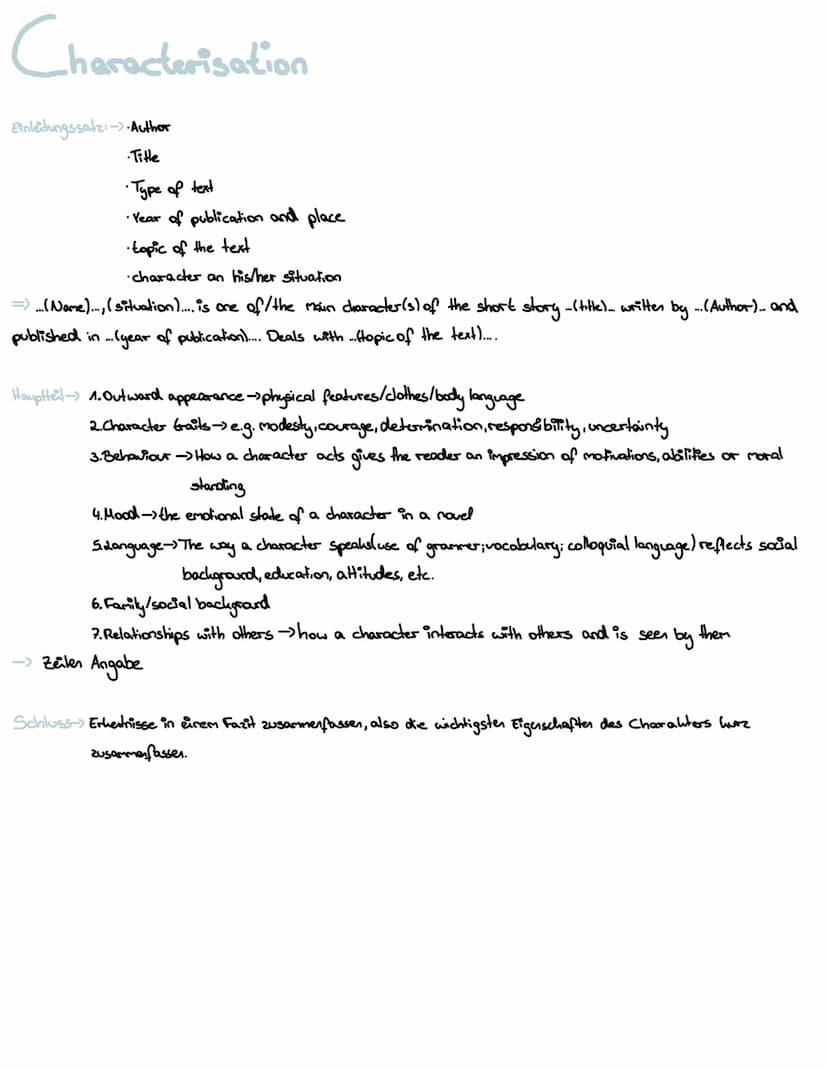 Characterisation
Einleitungssatz:→ ·Author
·Title
·Type of text
·Year of publication and place
·topic of the text
·character an his/her situation
⇒ ...(Name)...,(situation)....is one of/the main character(s) of the short story ...(title)... written by ...(Author)... and
published in ...(year of publication).... Deals with ...(topic of the text)....
Hauptteil→ 1.Outward appearance→physical features/clothes/body language
2.Character traits→e.g. modesty,courage,determination,responsibility,uncertainty
3.Behaviour→How a character acts gives the reader an impression of motivations,abilities or moral
standing
4.Mood→the emotional state of a character in a novel
5.Language→The way a character speaks(use of grammer;vocabulary; colloquial language) reflects social
background,education,attitudes,etc.
6.Family/social background
7.Relationships with others→how a character interacts with others and is seen by them
→ Zeilen Angabe
Schluss→ Erkentnisse in einem Fazit zusammenfassen,also die wichtigsten Eigenschaften des Charakters kurz
zusammenfassen.